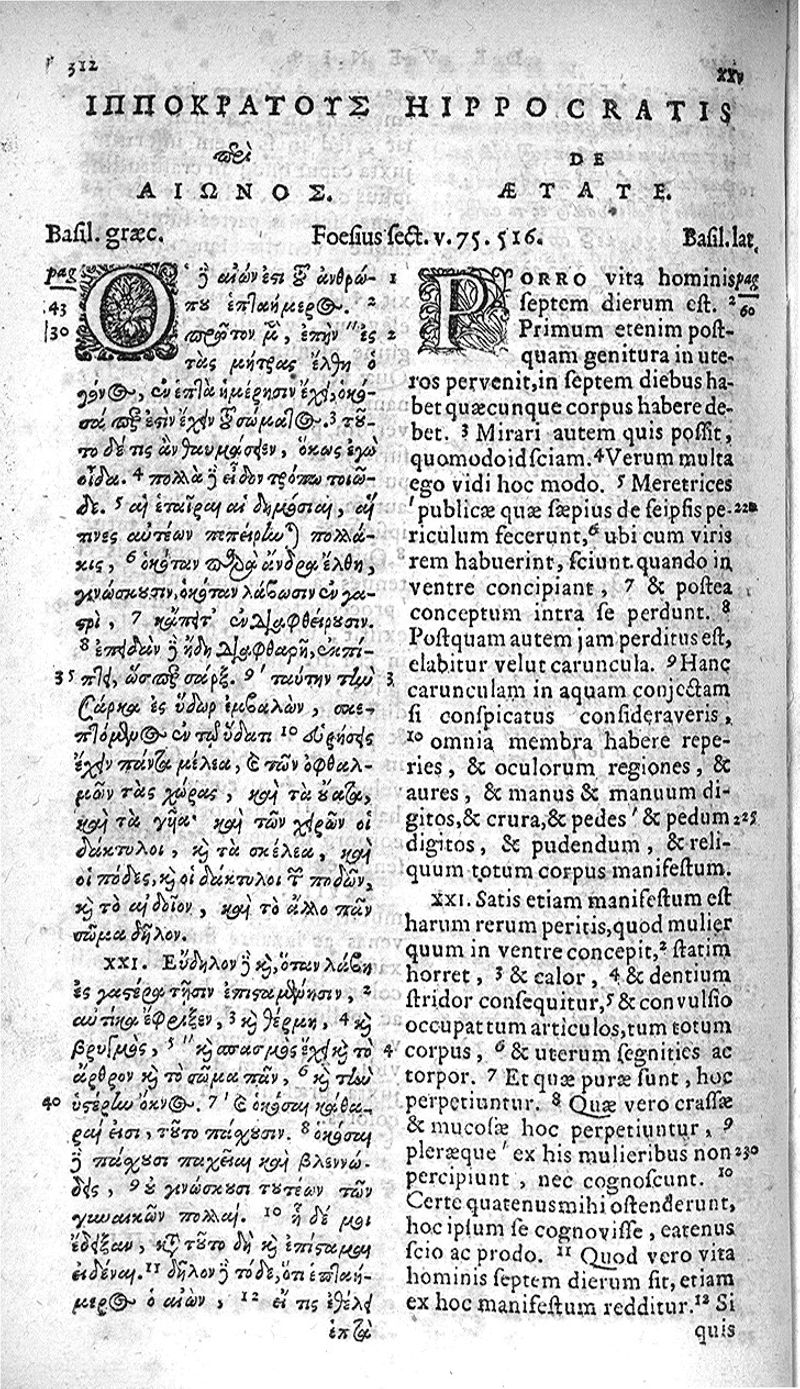 312
XXV
ΙΠΠΟΚΡΑΤΟΥΣ
περὶ
ΑΙΩΝΟΣ.
HIPPOCRATIS
DE
ÆTATE.
Basil. græc. Foesius sect. v. 75. 516. Basil. lat.
pag
43
30
Ο δὲ αἰών ἐστι τοῦ ἀνθρώ- 1
που ἑπταήμερος. 2
πρῶτον μὲν, ἐπὴν '' ἐς 2
τὰς μήτρας ἔλθῃ ὁ
γόνος, ἐν ἑπτὰ ἡμέρῃσιν ἔχει, ὁκό-
σα περ ἐστὶν ἔχειν τοῦ σώματος. 3 τοῦ-
το δέ τις ἂν θαυμάσειεν, ὅκως ἐγὼ
οἶδα. 4 πολλὰ δὲ εἶδον τρόπῳ τοιῷ-
δε. 5 αἱ ἑταῖραι αἱ δημόσιαι, αἵ
τινες αὐτέων πεπείρηνται πολλά-
κις, 6 ὁκόταν παρὰ ἄνδρα ἔλθῃ,
γινώσκουσιν, ὁκόταν λάβωσιν ἐν γα-
στρὶ, 7 κἄπειτ' ἐνδιαφθείρουσιν.
8 ἐπειδὰν δὲ ἤδη διαφθαρῇ, ἐκπί-
35 πτει, ὥσπερ σάρξ. 9 ' ταύτην τὴν 3
σάρκα ἐς ὕδωρ ἐμβαλὼν, σκε-
πτόμενος ἐν τῷ ὕδατι 10 εὑρήσεις
ἔχειν πάντα μέλεα, καὶ τῶν ὀφθαλ-
μῶν τὰς χώρας, καὶ τὰ οὔατα,
καὶ τὰ γυῖα· καὶ τῶν χειρῶν οἱ
δάκτυλοι, καὶ τὰ σκέλεα, καὶ
οἱ πόδες, καὶ οἱ δάκτυλοι τῶν ποδῶν,
καὶ τὸ αἰδοῖον, καὶ τὸ ἄλλο πᾶν
σῶμα δῆλον.
XXI. Εὔδηλον δὲ καὶ, ὅταν λάβῃ
ἐς γαστέρα τῇσιν ἐπισταμένῃσιν, 2
αὐτίκα ἔφριξεν, 3 καὶ θέρμη, 4 καὶ
βρυγμὸς, 5 '' καὶ σπασμὸς ἔχει καὶ τὸ 4
ἄρθρον καὶ τὸ σῶμα πᾶν, 6 καὶ τὴν
40 ὑστέρην ὄκνος. 7 ' καὶ ὁκόσαι καθα-
ραί εἰσι, τοῦτο πάσχουσιν. 8 ὁκόσαι
δὲ πάχουσι παχεῖαι καὶ βλεννώ-
δεις, 9 οὐ γινώσκουσι τουτέων τῶν
γυναικῶν πολλαί. 10 ᾗ δέ μοι
ἔδειξαν, κατὰ τοῦτο δὴ καὶ ἐπίσταμαι
εἰδέναι. 11 δῆλον δὲ τόδε, ὅτι ἑπταή-
μερος ὁ αἰὼν, 12 εἴ τις ἐθέλει
ἑπτὰ
pag
60
PORRO vita hominis
septem dierum est. 2
Primum etenim post-
quam genitura in ute-
ros pervenit, in septem diebus ha-
bet quæcunque corpus habere de-
bet. 3 Mirari autem quis possit,
quomodo id sciam. 4 Verum multa
ego vidi hoc modo. 5 Meretrices
' publicæ quæ sæpius de seipsis pe- 220
riculum fecerunt, 6 ubi cum viris
rem habuerint, sciunt quando in
ventre concipiant, 7 & postea
conceptum intra se perdunt. 8
Postquam autem jam perditus est,
elabitur velut caruncula. 9 Hanc
carunculam in aquam conjectam
si conspicatus consideraveris,
10 omnia membra habere repe-
ries, & oculorum regiones, &
aures, & manus & manuum di-
gitos, & crura, & pedes ' & pedum 225
digitos, & pudendum, & reli-
quum totum corpus manifestum.
XXI. Satis etiam manifestum est
harum rerum peritis, quod mulier
quum in ventre concepit, 2 statim
horret, 3 & calor, 4 & dentium
stridor consequitur, 5 & convulsio
occupat tum articulos, tum totum
corpus, 6 & uterum segnities ac
torpor. 7 Et quæ puræ sunt, hoc
perpetiuntur. 8 Quæ vero crassæ
& mucosæ hoc perpetiuntur, 9
pleræque ' ex his mulieribus non 230
percipiunt, nec cognoscunt. 10
Certe quatenus mihi ostenderunt,
hoc ipsum se cognovisse, eatenus
scio ac prodo. 11 Quod vero vita
hominis septem dierum sit, etiam
ex hoc manifestum redditur. 12 Si
quis